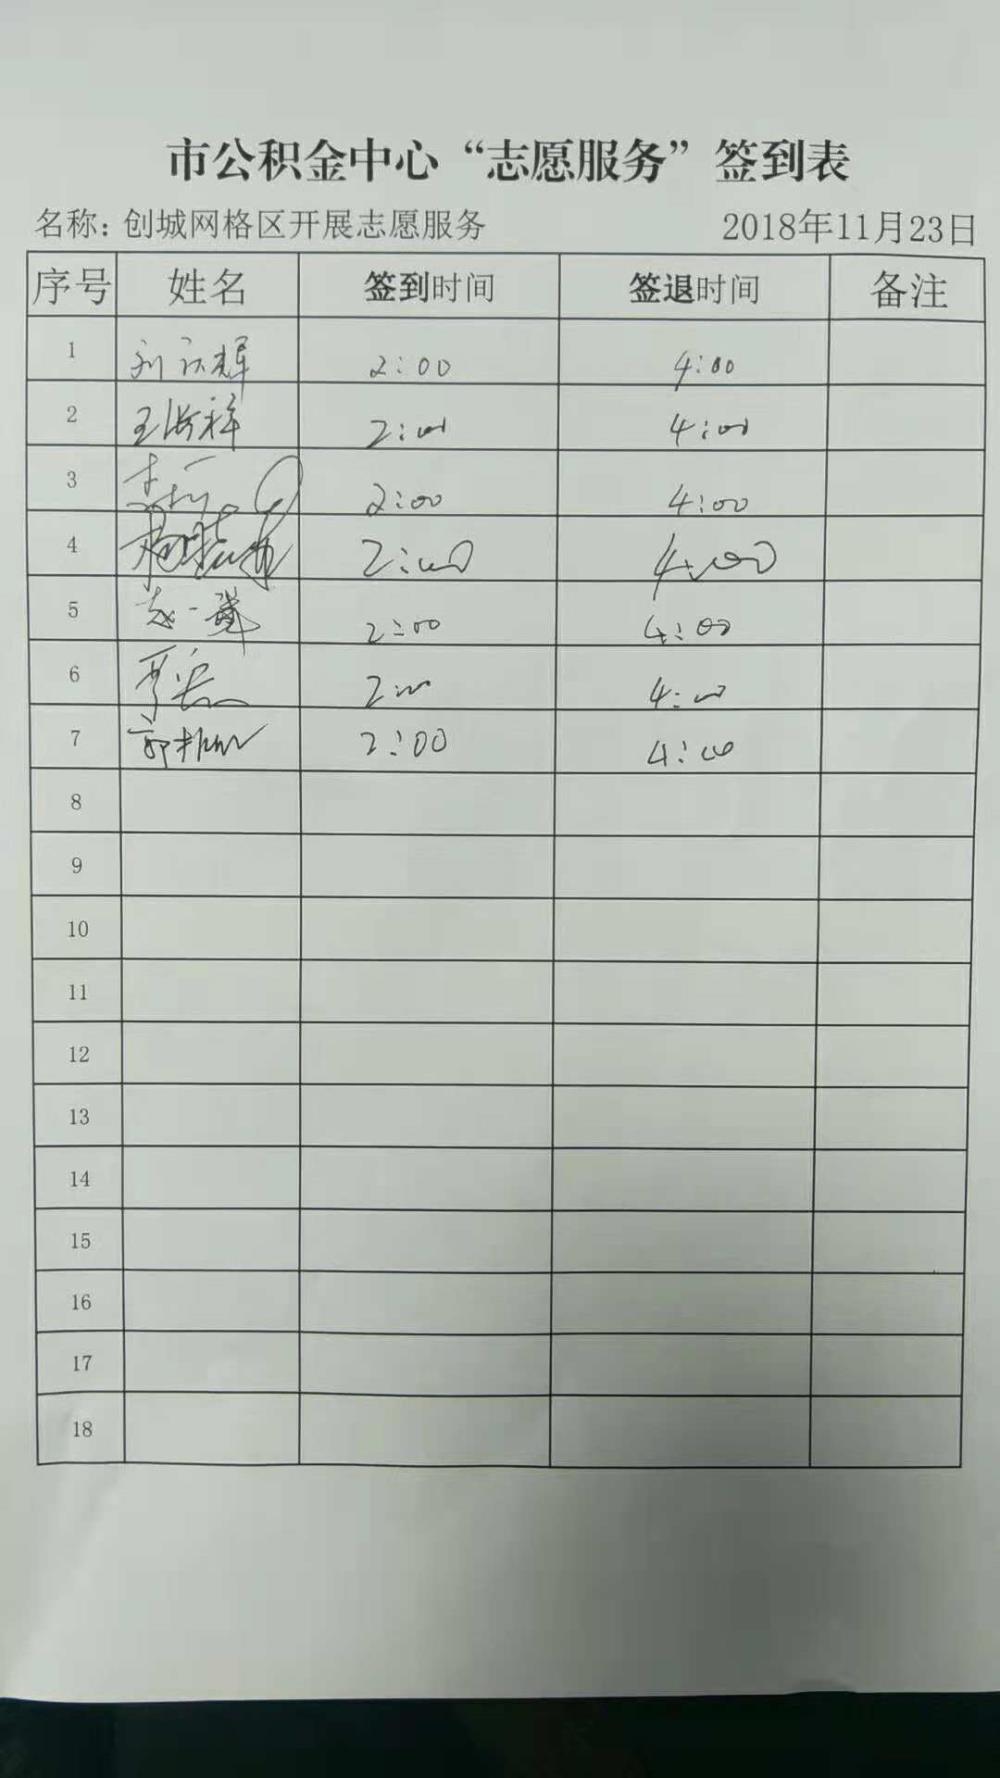 市公积金中心“志愿服务”签到表
名称: 创城网格区开展志愿服务 2018年11月23日
序号 姓名 签到时间 签退时间 备注
1 刘 辉 2:00 4:00
2 王 祥 2:00 4:00
3 2:00 4:00
4 杨 2:00 4:00
5 一 2:00 4:00
6 2:00 4:00
7 郭 2:00 4:00
8
9
10
11
12
13
14
15
16
17
18